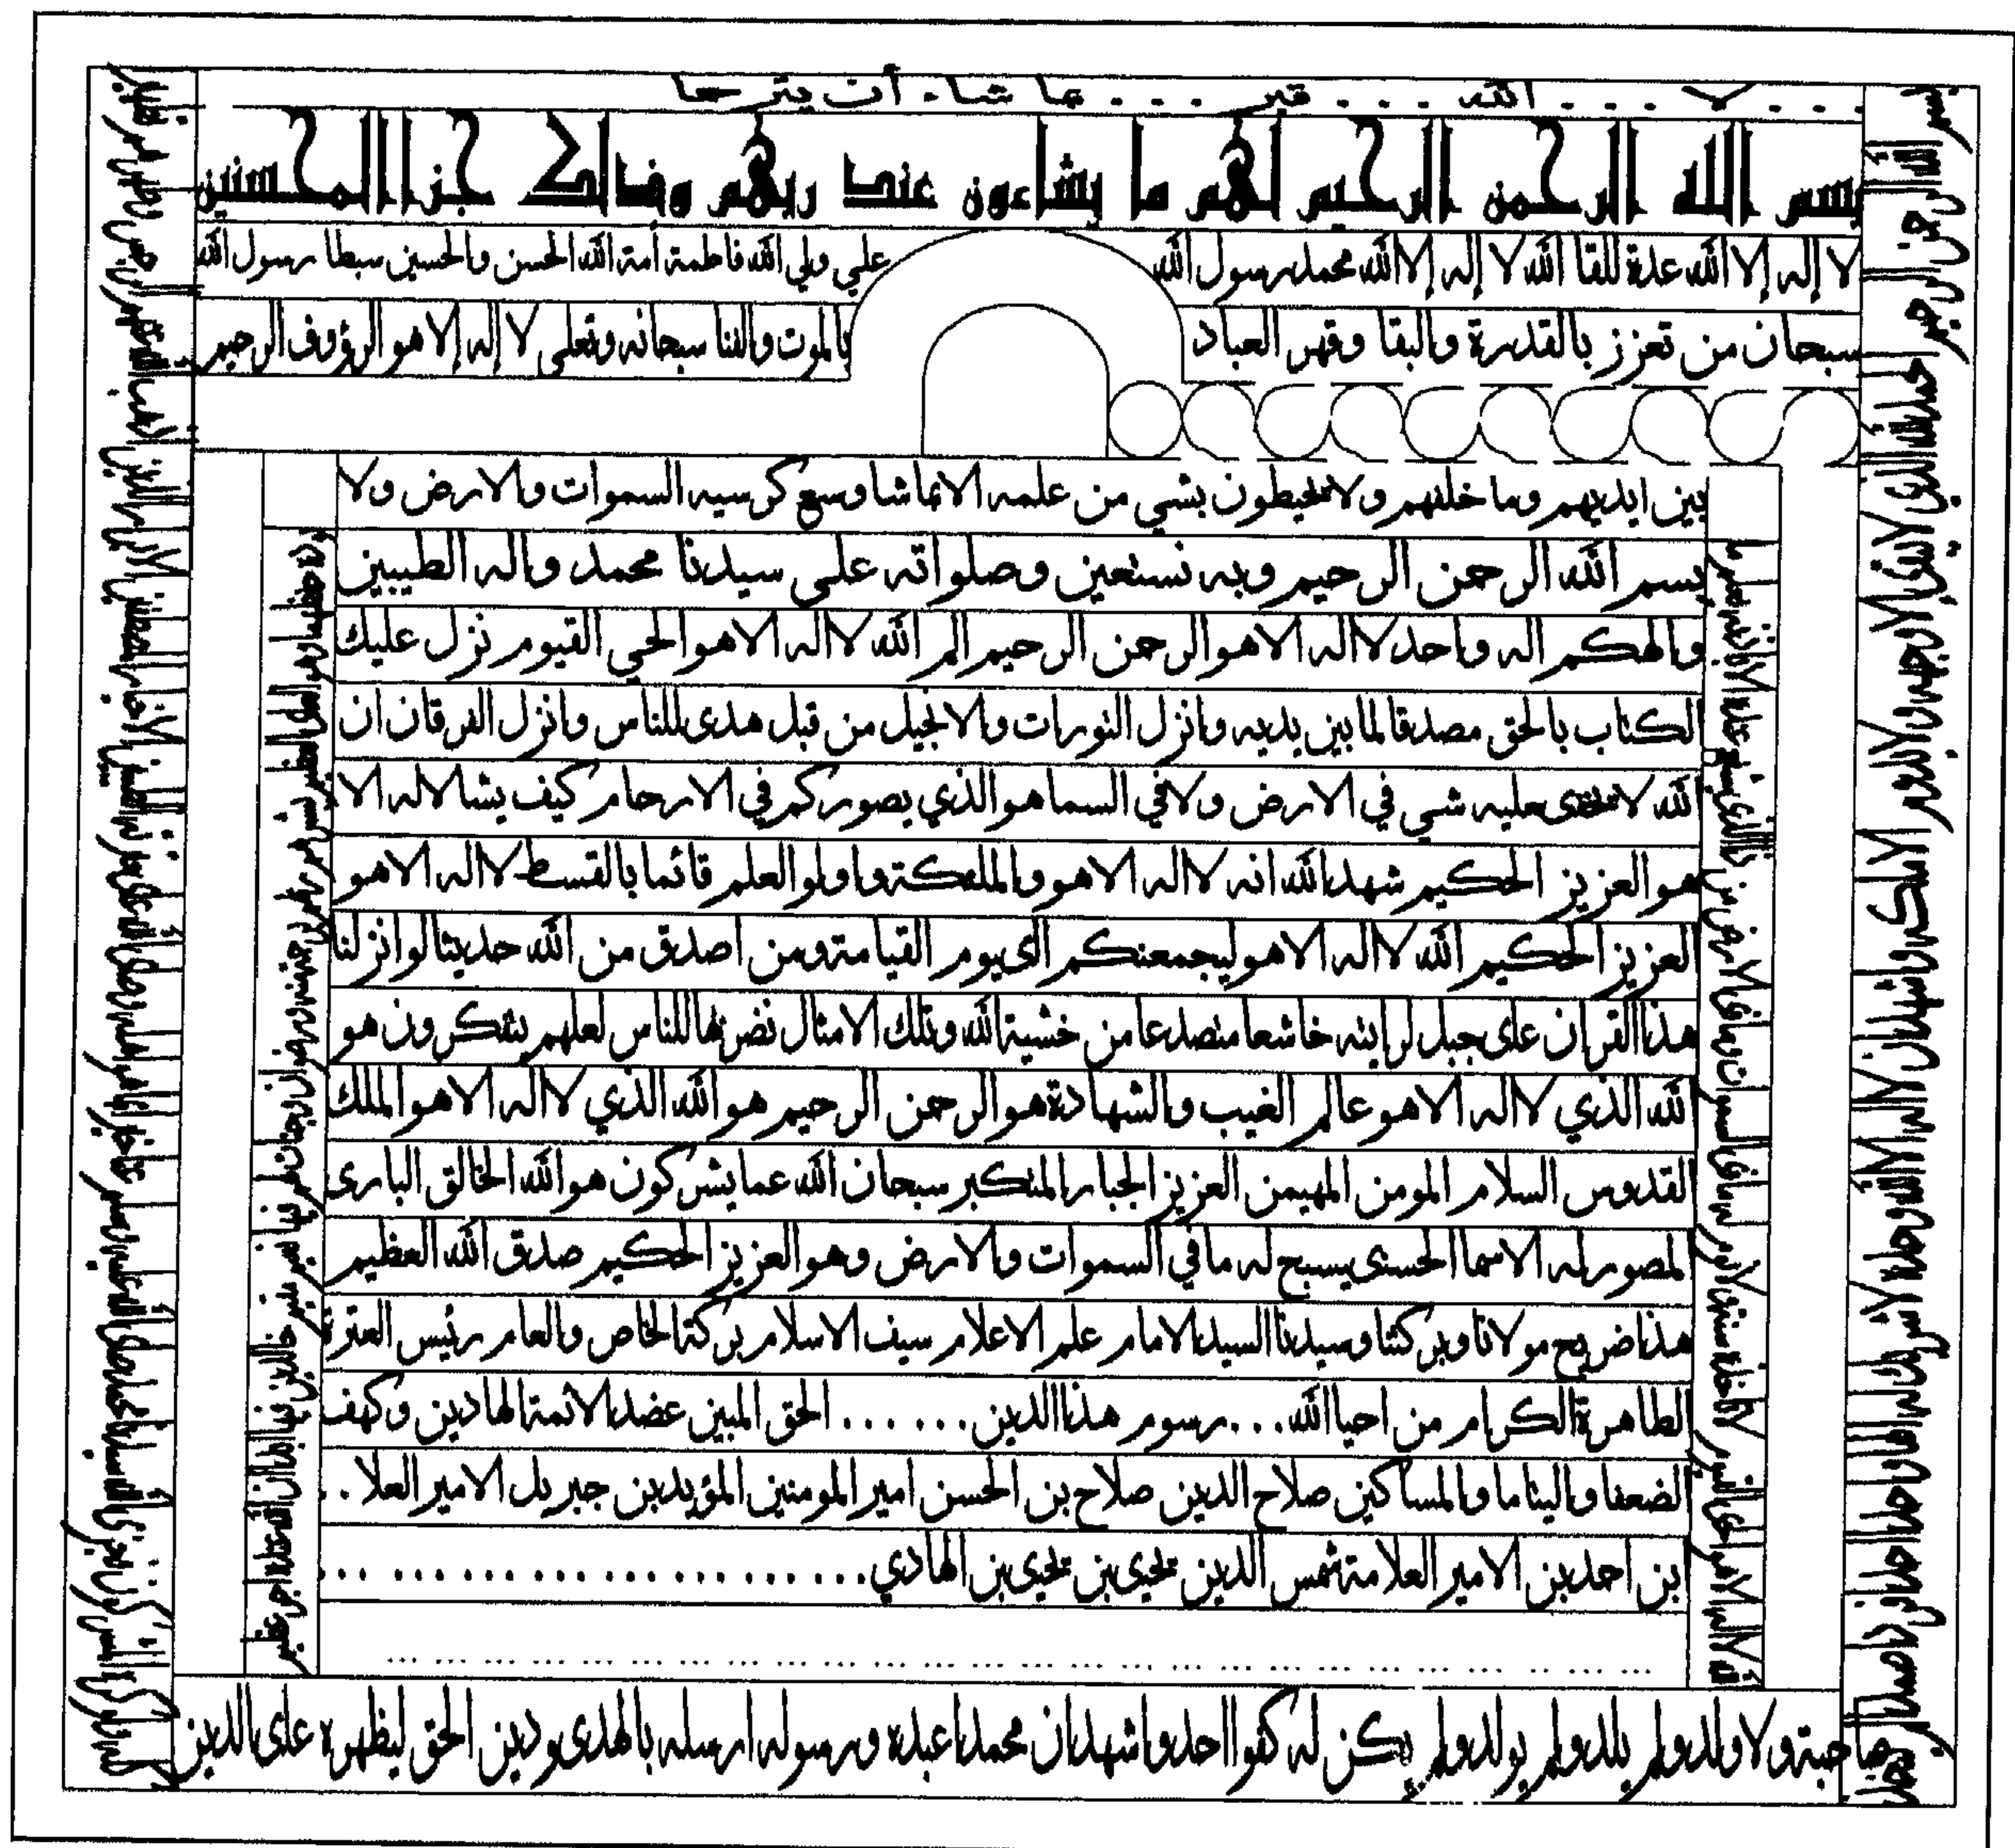 . . . . لا . . . . الله . . . قبر . . . ما شاء أن يترحما
بسم الله الرحمن الرحيم لهم ما يشاءون عند ربهم وذالك جزا المحسنين
لا إله إلا الله عدة للقا الله لا إله إلا الله محمد رسول الله علي ولي الله فاطمة أمة الله الحسن والحسين سبطا رسول الله
سبحان من تعزز بالقدرة والبقا وقهر العباد بالموت والفنا سبحانه وتعلى لا إله إلا هو الرؤوف الرحيم
بين ايديهم وما خلفهم ولا يحيطون بشي من علمه الا بما شا وسع كرسيه السموات والارض ولا
بسم الله الرحمن الرحيم وبه نستعين وصلواته على سيدنا محمد واله الطيبين
والهكم اله واحد لا اله الا هو الرحمن الرحيم الم الله لا اله الا هو الحي القيوم نزل عليك
الكتاب بالحق مصدقا لما بين يديه وانزل التورات والانجيل من قبل هدى للناس وانزل الفرقان ان
الله لا يخفى عليه شي في الارض ولا في السما هو الذي يصوركم في الارحام كيف يشا لا اله الا
هو العزيز الحكيم شهد الله انه لا اله الا هو والملئكة واولو العلم قائما بالقسط لا اله الا هو
العزيز الحكيم الله لا اله الا هو ليجمعنكم الى يوم القيامة ومن اصدق من الله حديثا لو انزلنا
هذا القران على جبل لرايته خاشعا متصدعا من خشية الله وتلك الامثال نضربها للناس لعلهم يتفكرون هو
الله الذي لا اله الا هو عالم الغيب والشهادة هو الرحمن الرحيم هو الله الذي لا اله الا هو الملك
القدوس السلام المومن المهيمن العزيز الجبار المتكبر سبحان الله عما يشركون هو الله الخالق البارى
المصور له الاسما الحسنى يسبح له ما في السموات والارض وهو العزيز الحكيم صدق الله العظيم
هذا ضريح مولانا وبركتنا وسيدنا السيد الامام علم الاعلام سيف الاسلام بركة الخاص والعام رئيس العترة
الطاهرة الكرام من احيا الله . . . رسوم هذا الدين . . . . . . الحق المبين عضد الائمة الهادين وكهف
الضعفا واليتاما والمساكين صلاح الدين صلاح بن الحسن امير المومنين المؤيد بن جبريل الامير العلا . .
بن احمد بن الامير العلامة شمس الدين يحيى بن يحيى بن الهادي
الله لا اله الا هو الحي القيوم لا تاخذه سنة ولا نوم له ما في السموات وما في الارض من ذا الذي يشفع عنده الا باذنه يعلم ما
يوده حفظهما وهو العلي العظيم يبشرهم ربهم برحمة منه ورضوان وجنات لهم فيها نعيم مقيم خالدين فيها ابدا ان الله عنده اجر عظيم
بسم الله الرحمن الرحيم الحمد لله الذي لا يبقى الا وجهه ولا يدوم الا ملكه واشهد ان لا اله الا الله وحده لا شريك له الها واحدا احدا
صاحبة ولا ولد ولم يلد ولم يولد ولم يكن له كفوا احد واشهد ان محمدا عبده ورسوله ارسله بالهدى ودين الحق ليظهره على الدين